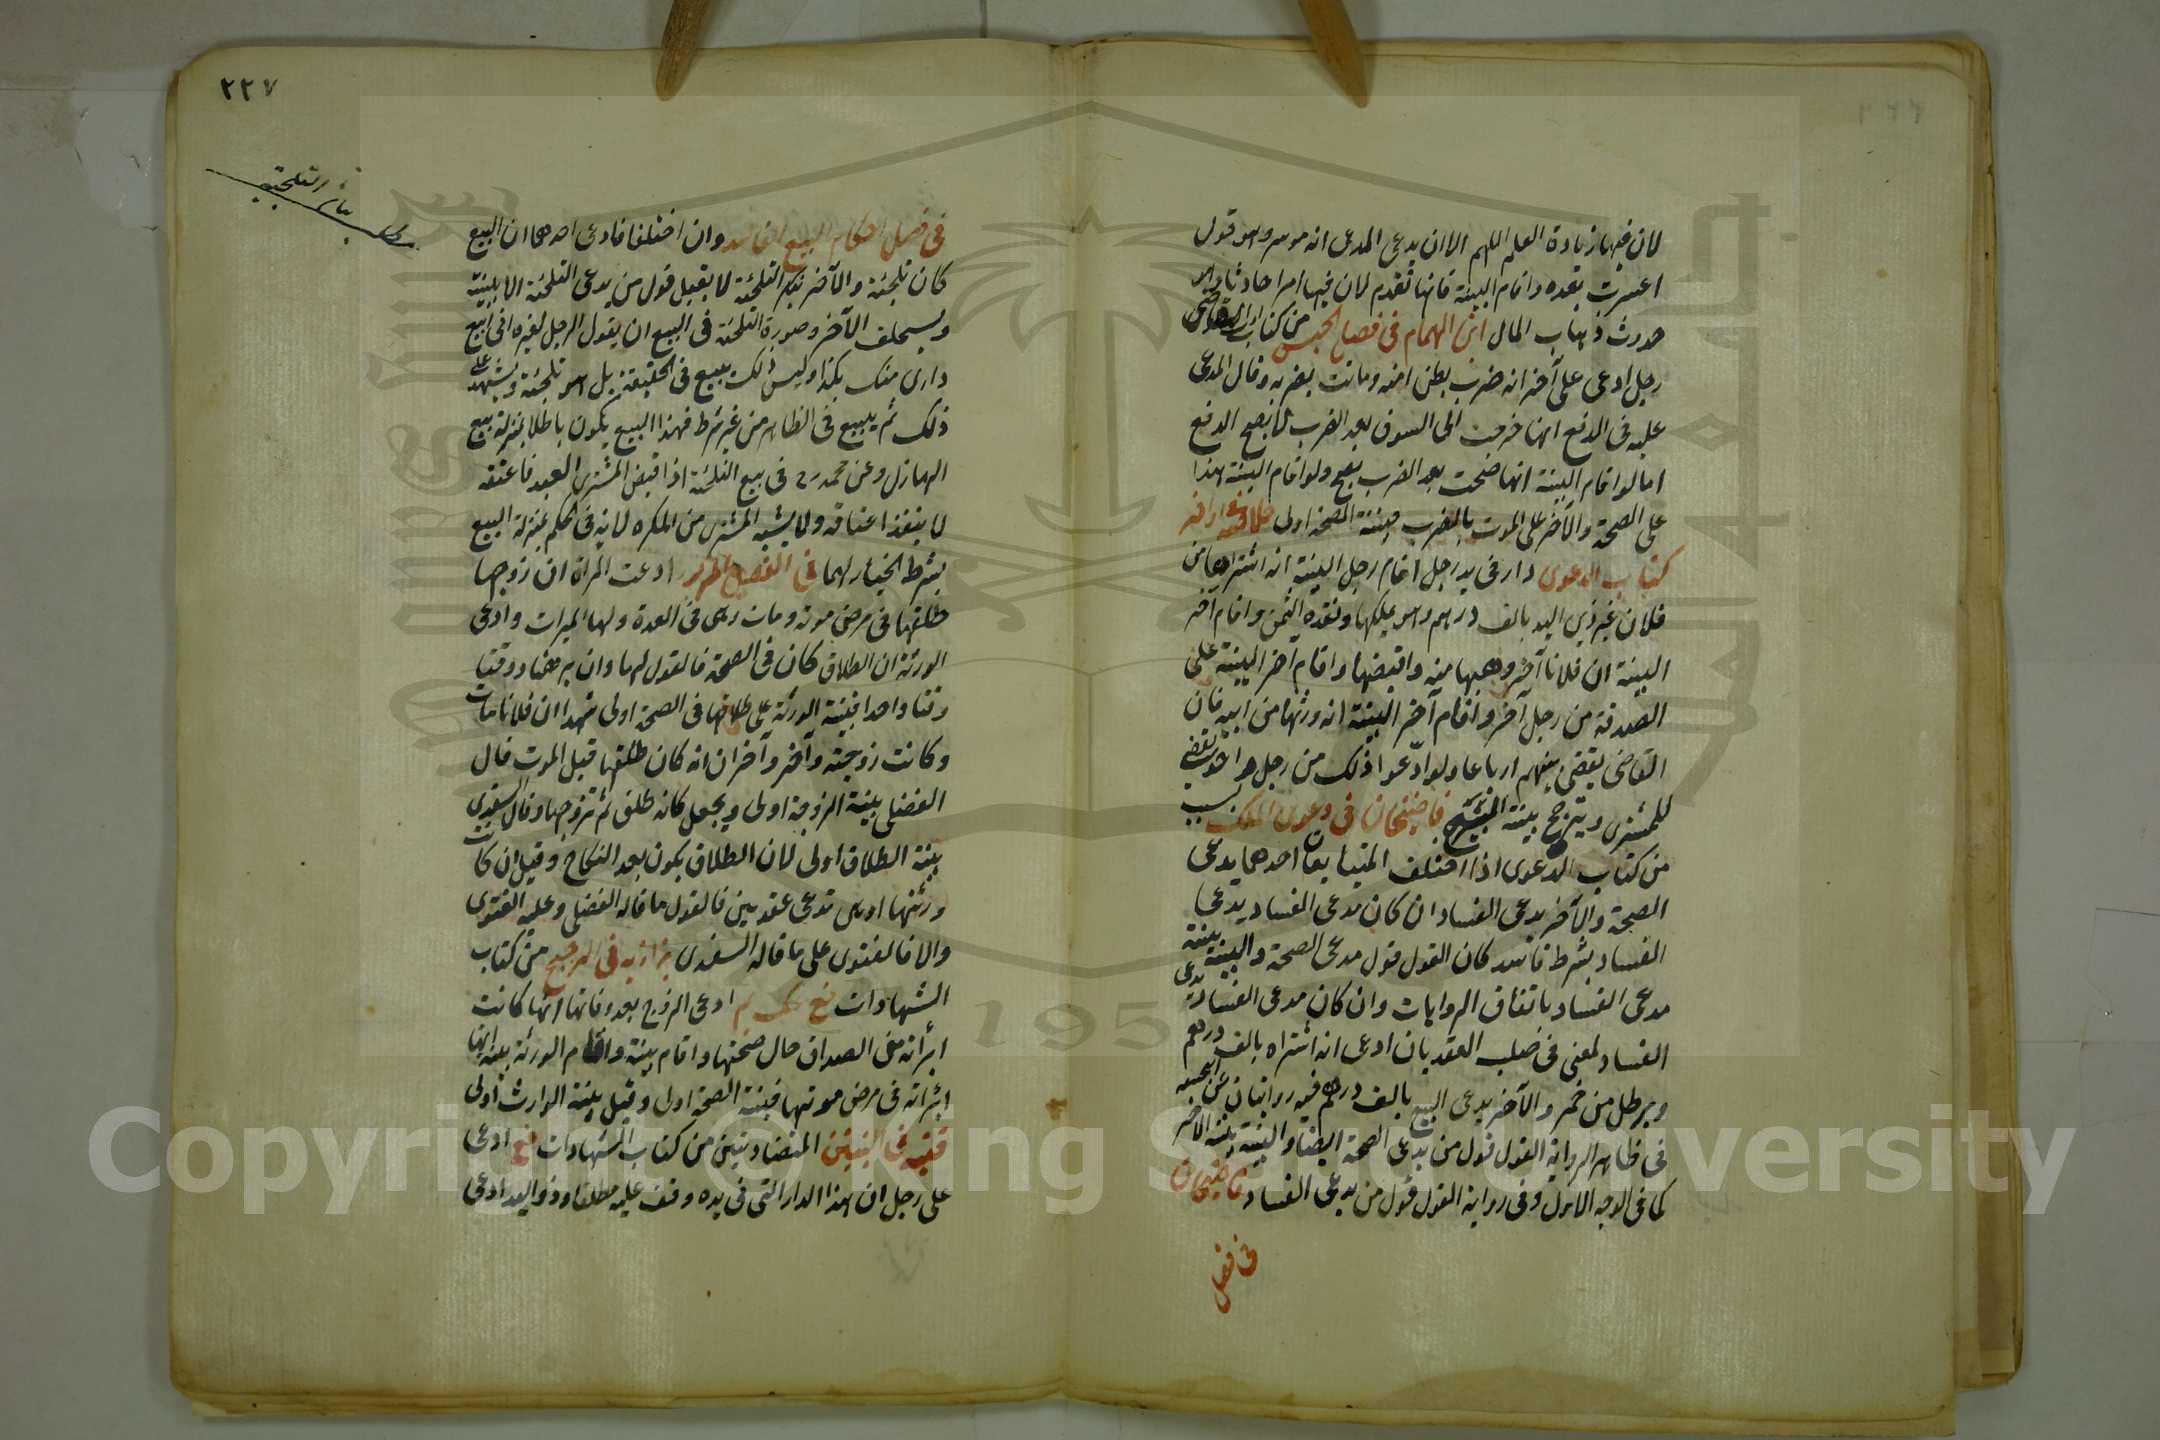 لان فيها زيادة العلم اللهم الا ان يدعى المدعى انه موسر وهو قول
اعسرت بعده واقام البينة فانها تقدم لان فيها امرا حادثا وهو
حدوث ذهاب المال ابن الهمام فى فصل الحبس من كتاب ادب القاضى
رجل ادعى على آخر انه ضرب بطن امته وماتت بضربه وقال المدعى
عليه فى الدفع انها خرجت الى السوق بعد الضرب لا يصح الدفع
اما لو اقام البينة انها صحت بعد الضرب يصح ولو اقام البينة هذا
على الصحة والآخر على الموت بالضرب فبينة الصحة اولى خلاصة فى اواخر
كتاب الدعوى دار فى يد رجل اقام رجل البينة انه اشتراها من
فلان غير ذى اليد بالف درهم وهو يملكها ونقده الثمن واقام آخر
البينة ان فلانا آخر وهبها منه واقبضها واقام آخر البينة على
الصدقة من رجل آخر واقام آخر البينة انه ورثها من ابيه فان
القاضى يقضى بينهم ارباعا ولو ادعوا ذلك من رجل واحد يقضى
للمشترى ويترجح بينة قاضيخان فى دعوى الملك بسبب
من كتاب الدعوى اذا اختلف المتبايعان احدهما يدعى
الصحة والآخر يدعى الفساد ان كان مدعى الفساد يدعى
الفساد بشرط فاسد كان القول قول مدعى الصحة والبينة بينة
مدعى الفساد باتفاق الروايات وان كان مدعى الفساد يدعى
الفساد لمعنى فى صلب العقد بان ادعى انه اشتراه بالف درهم
وبرطل من خمر والآخر يدعى البيع بالف درهم فيه روايتان عن ابى حنيفة
فى ظاهر الرواية القول قول من يدعى الصحة ايضا والبينة بينة الآخر
كما فى الوجه الاول وفى رواية القول قول من يدعى الفساد قاضيخان
فى فصل
٢٢٧
فى فصل احكام البيع الفاسد وان اختلفا فادعى احدهما ان البيع
كان تلجئة والآخر ينكر التلجئة لا يقبل قول من يدعى التلجئة الا ببينة
ويستحلف الآخر وصورة التلجئة فى البيع ان يقول الرجل لغيره انى ابيع
دارى منك بكذا وليس ذلك ببيع فى الحقيقة بل هو تلجئة ويشهد على
ذلك ثم يبيع فى الظاهر من غير شرط فهذا البيع يكون باطلا بمنزلة بيع
الهازل وعن محمد رح فى بيع التلجئة اذا قبض المشترى العبد فاعتقه
لا ينفذ اعتاقه ولا يشبه المشترى من المكره لانه فى الحكم بمنزلة البيع
بشرط الخيار لهما فى الفصل المزبور ادعت المرأة ان زوجها
طلقها فى مرض موته ومات وهى فى العدة ولها الميراث وادعى
الورثة ان الطلاق كان فى الصحة فالقول لها وان برهنا ووقتا
وقتا واحدا فبينة الورثة على طلاقها فى الصحة اولى شهدا ان فلانا مات
وكانت زوجته وآخر وآخران انه كان طلقها قبل الموت قال
الفضلى بينة الزوجة اولى ويجعل كانه طلق ثم تزوجها وقال السغدى
بينة الطلاق اولى لان الطلاق يكون بعد النكاح وقيل ان كانت
ورثتها اوهى تدعى عقدين فالقول ما قاله الفضلى وعليه الفتوى
والا فالفتوى على ما قاله السغدى بزازيه فى الترجيح من كتاب
الشهادات ادعى الزوج بعد وفاتها انها كانت
ابرأته من الصداق حال صحتها واقام بينة واقام الورثة بينة انها
ابرأته فى مرض موتها فبينة الصحة اولى وقيل بينة الوارث اولى
قنيه فى البينتين المتضادتين من كتاب الشهادات ادعى
على رجل ان هذا الدار التى فى يده وقف عليه مطلقا وذو اليد ادعى
Copyright © King Saud University
1957